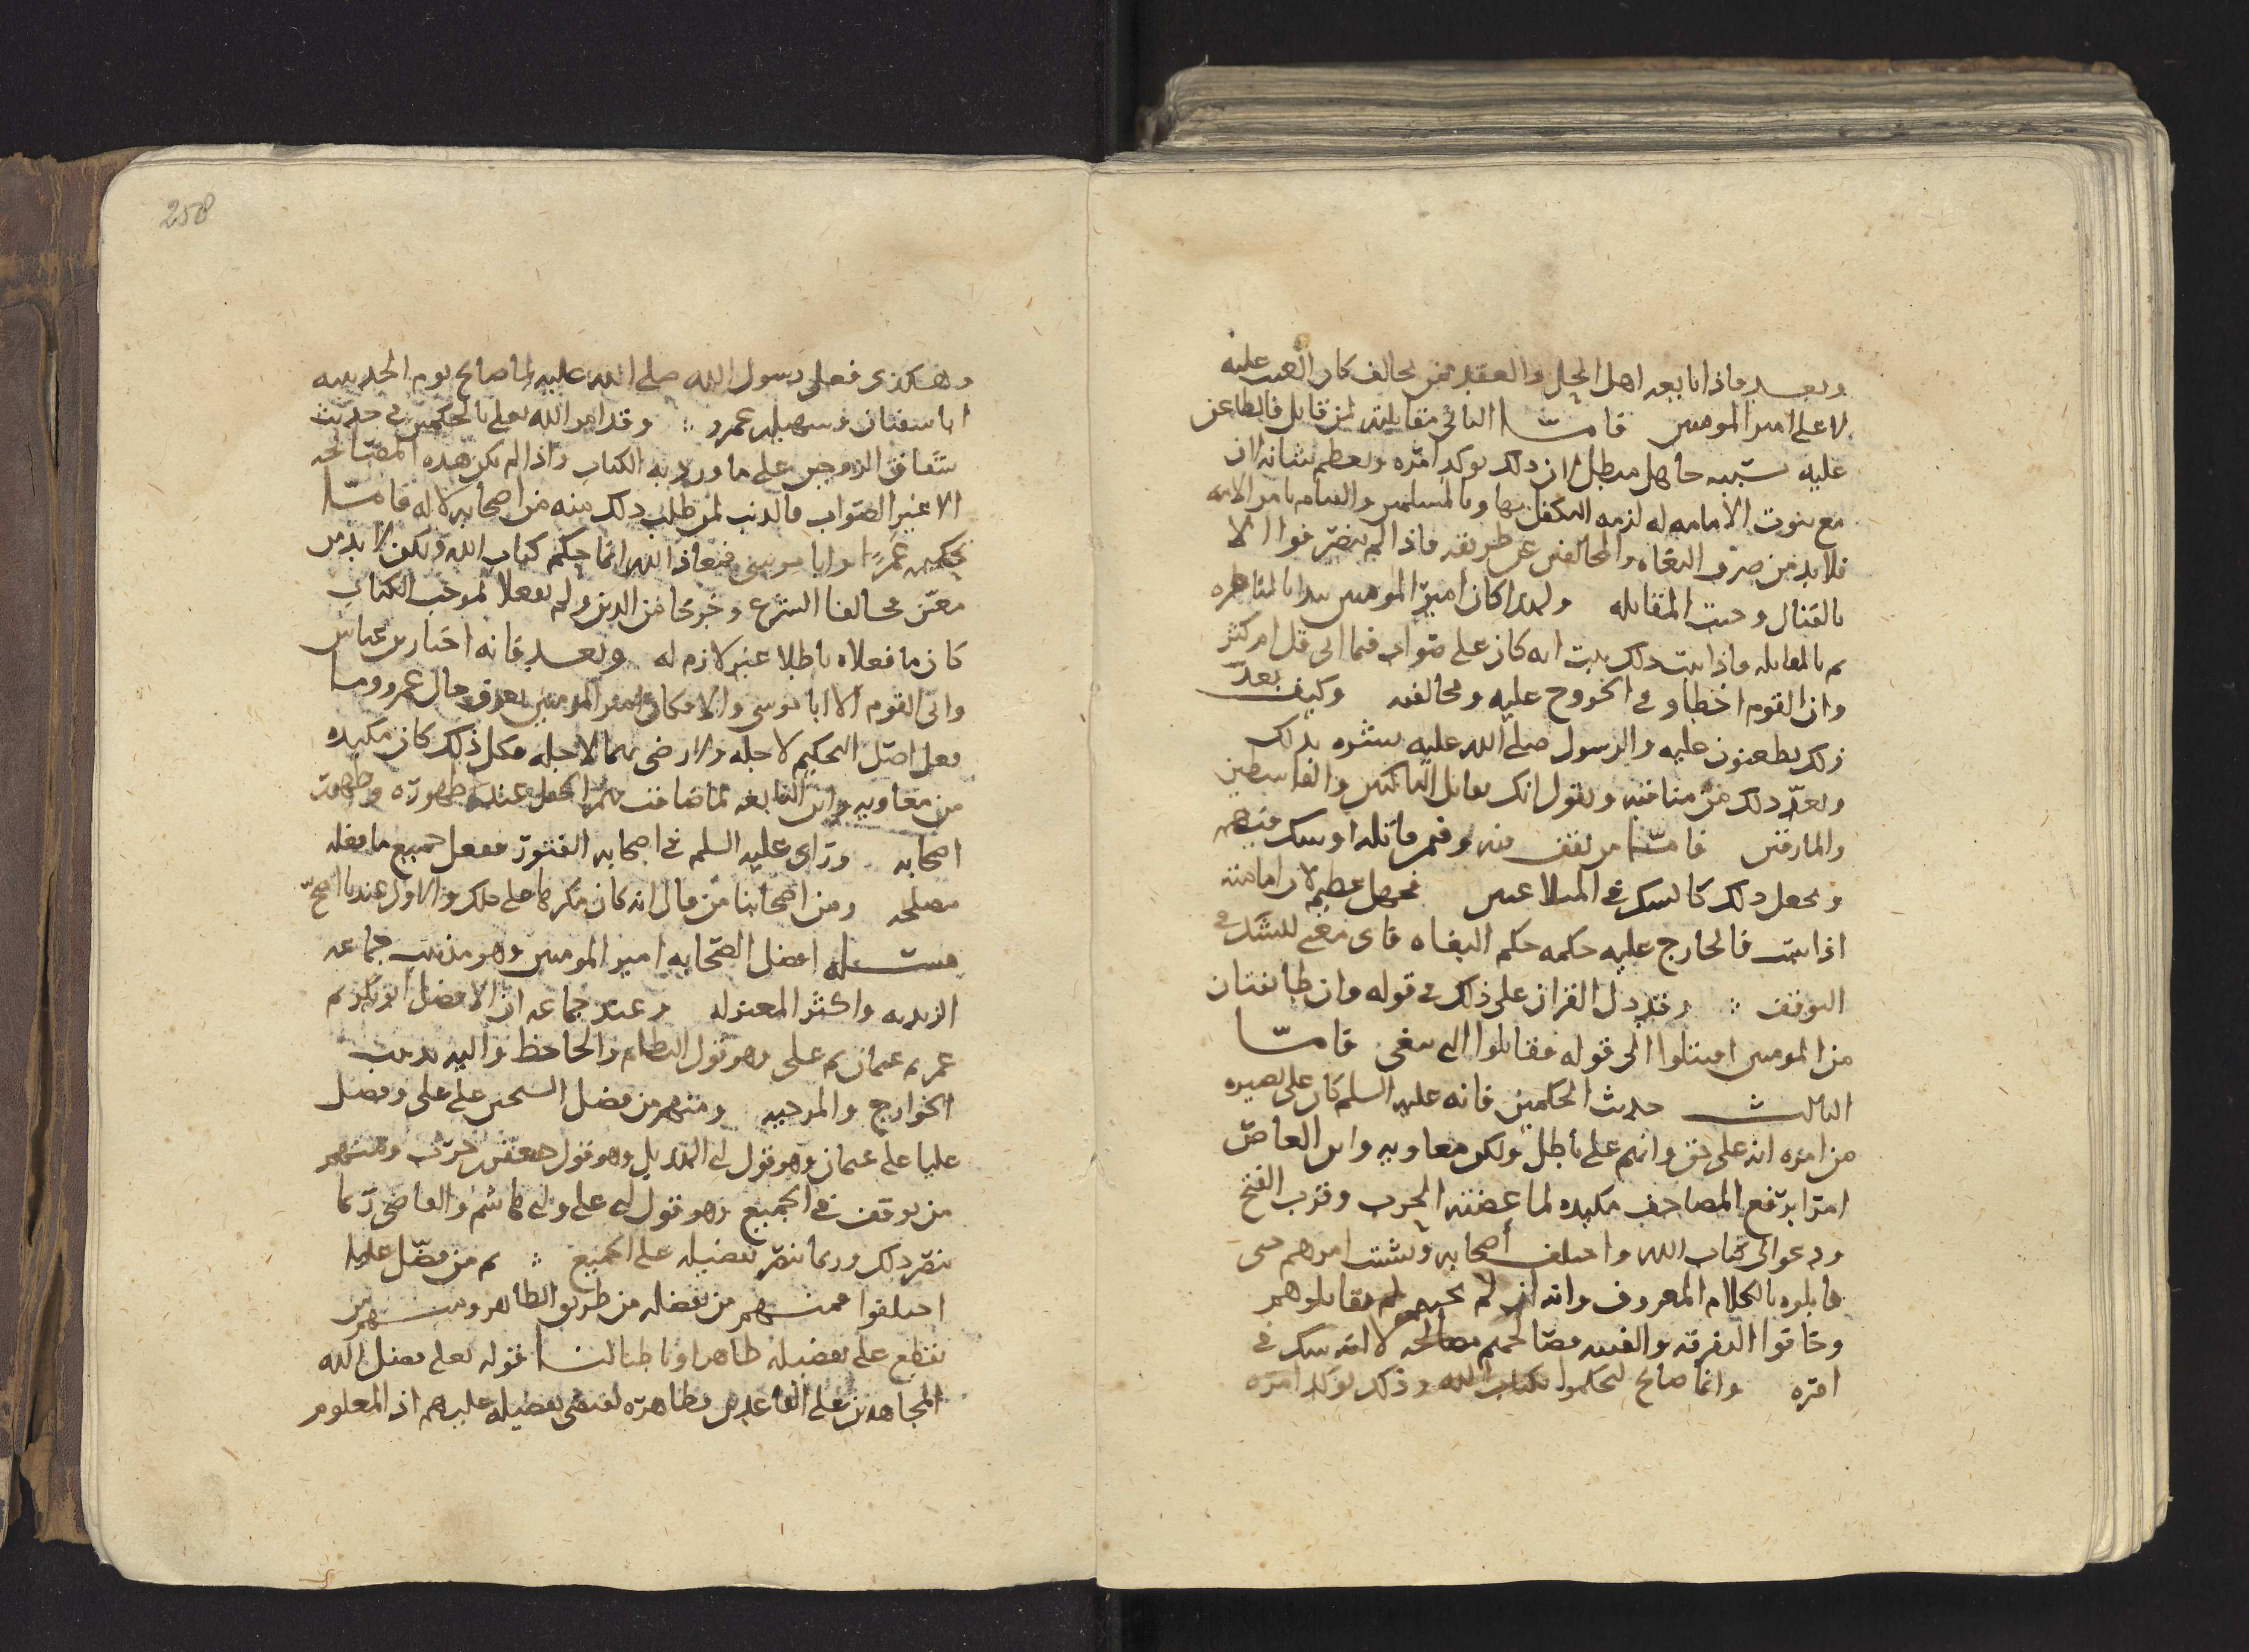 وبعد فاذا بايعه اهل الحل والعقد فمن يخالف كان العيب عليه
لا على امير المومنين فامـا الثانى مقابلته لمن قابل فالطاعن
عليه بسببه جاهل مبطل لان ذلك يوكد امره ويعظم شانه لان
مع ثبوت الامامه له لزمه التكفل بها وبالمسلمين والقيام بامر الامه
فلا بد من صرف البغاه والمخالفين عن طريقه فاذا لم ينصرفوا الا
بالقتال وجبت المقابله ولهذا كان امير المومنين يبدا بالمناظره
ثم بالمقابله فاذا ثبت ذلك ثبت انه كان على صواب فيما اتى قل ام كثر
وان القوم اخطاوا فى الخروج عليه ومخالفته وكيف يعد
ذلك يطعنون عليه والرسول صلى الله عليه بشره بذلك
ويعد ذلك من مناقبه ويقول انك تقاتل الناكثين والقاسطين
والمارقين فامـا من يقف فيه وفيمن قاتله او يشك فيهم
ويجعل ذلك كالشك فى المتلاعنين فجهل عظيم لان امامته
اذا ثبتت فالخارج عليه حكمه حكم البغاه فاى معنى للشك فى
التوقف وقد دل القران على ذلك فى قوله وان طايفتان
من المومنين اقتتلوا الى قوله فقاتلوا التى تبغى فامـا
الثالث حديث الحكمين فانه عليه السلم كان على بصيره
من امره انه على حق وانهم على باطل ولكن معاويه وابن العاص
امرا برفع المصاحف مكيده لما عضتهم الحرب وقرب الفتح
ودعوا الى كتاب الله واختلف أصحابه وتشتت امرهم حتى
قابلوه بالكلام المعروف وانه ان لم يجبهم لم يقاتلوهم
وخافوا الفرقه والفتنه فصالحهم مصالحه لا انه شك فى
امره وانما صالح ليحكموا بكتاب الله وذلك يوكد امره
وهكذى فعل رسول الله صلى الله عليه لما صالح يوم الحديبيه
ابا سفيان وسهيل بن عمرو وقد امر الله تعالى بالحكمين فى حديث
شقاق الزوجين على ما ورد به الكتاب واذا لم تكن هذه المصالحه
الا عين الصواب فالذنب لمن طلب ذلك منه من اصحابه لا له فامـا
تحكيم عمرًا وابا موسى فمعاذ الله انما حكم كتاب الله ولكن لا بد من
معبر مخالفا الشرع وخرجا من الدين ولم يفعلا بموجب الكتاب
كان ما فعلاه باطلا غير لازم له وبعد فانه اختار بن عباس
وابى القوم الا ابا موسى والا فكان امير المومنين يعرف حال عمرو وما
فعل اصل التحكيم لاجله ولا رضى بهما لاجله فكل ذلك كان مكيده
من معاويه وابن النابغه لما ضاقت بهم الحيل عند ظهوره وظهور
اصحابه وراى عليه السلم فى اصحابه الفتور ففعل جميع ما فعله
مصلحه ومن اصحابنا من قال انه كان مكرها على ذلك والاول عندنا اصح
مسـلـه افضل الصحابه امير المومنين وهو مذهب جماعه
الزيديه واكثر المعتزله وعند جماعه ان الافضل ابو بكر ثم
عمر ثم عثمان ثم على وهو قول النظام والجاحظ واليه يذهب
الخوارج والمرجيه ومنهم من فضل الشيخين على على وفضل
عليا على عثمان وهو قول ابى الهذيل وهو قول جعفر بن حرب ومنهم
من توقف فى الجميع وهو قول ابى على وابى هاشم والقاضى ربما
نصر ذلك وربما نصر تفضيله على الجميع ثم من فضل عليا
اختلفوا فمنـهم من يفضله من طريق الظاهر ومنـهم من
يقطع على تفضيله ظاهرا وباطنا لنا قوله تعلى فضل الله
المجاهدين على القاعدين فظاهره يقتضى تفضيله عليهم اذ المعلوم
258